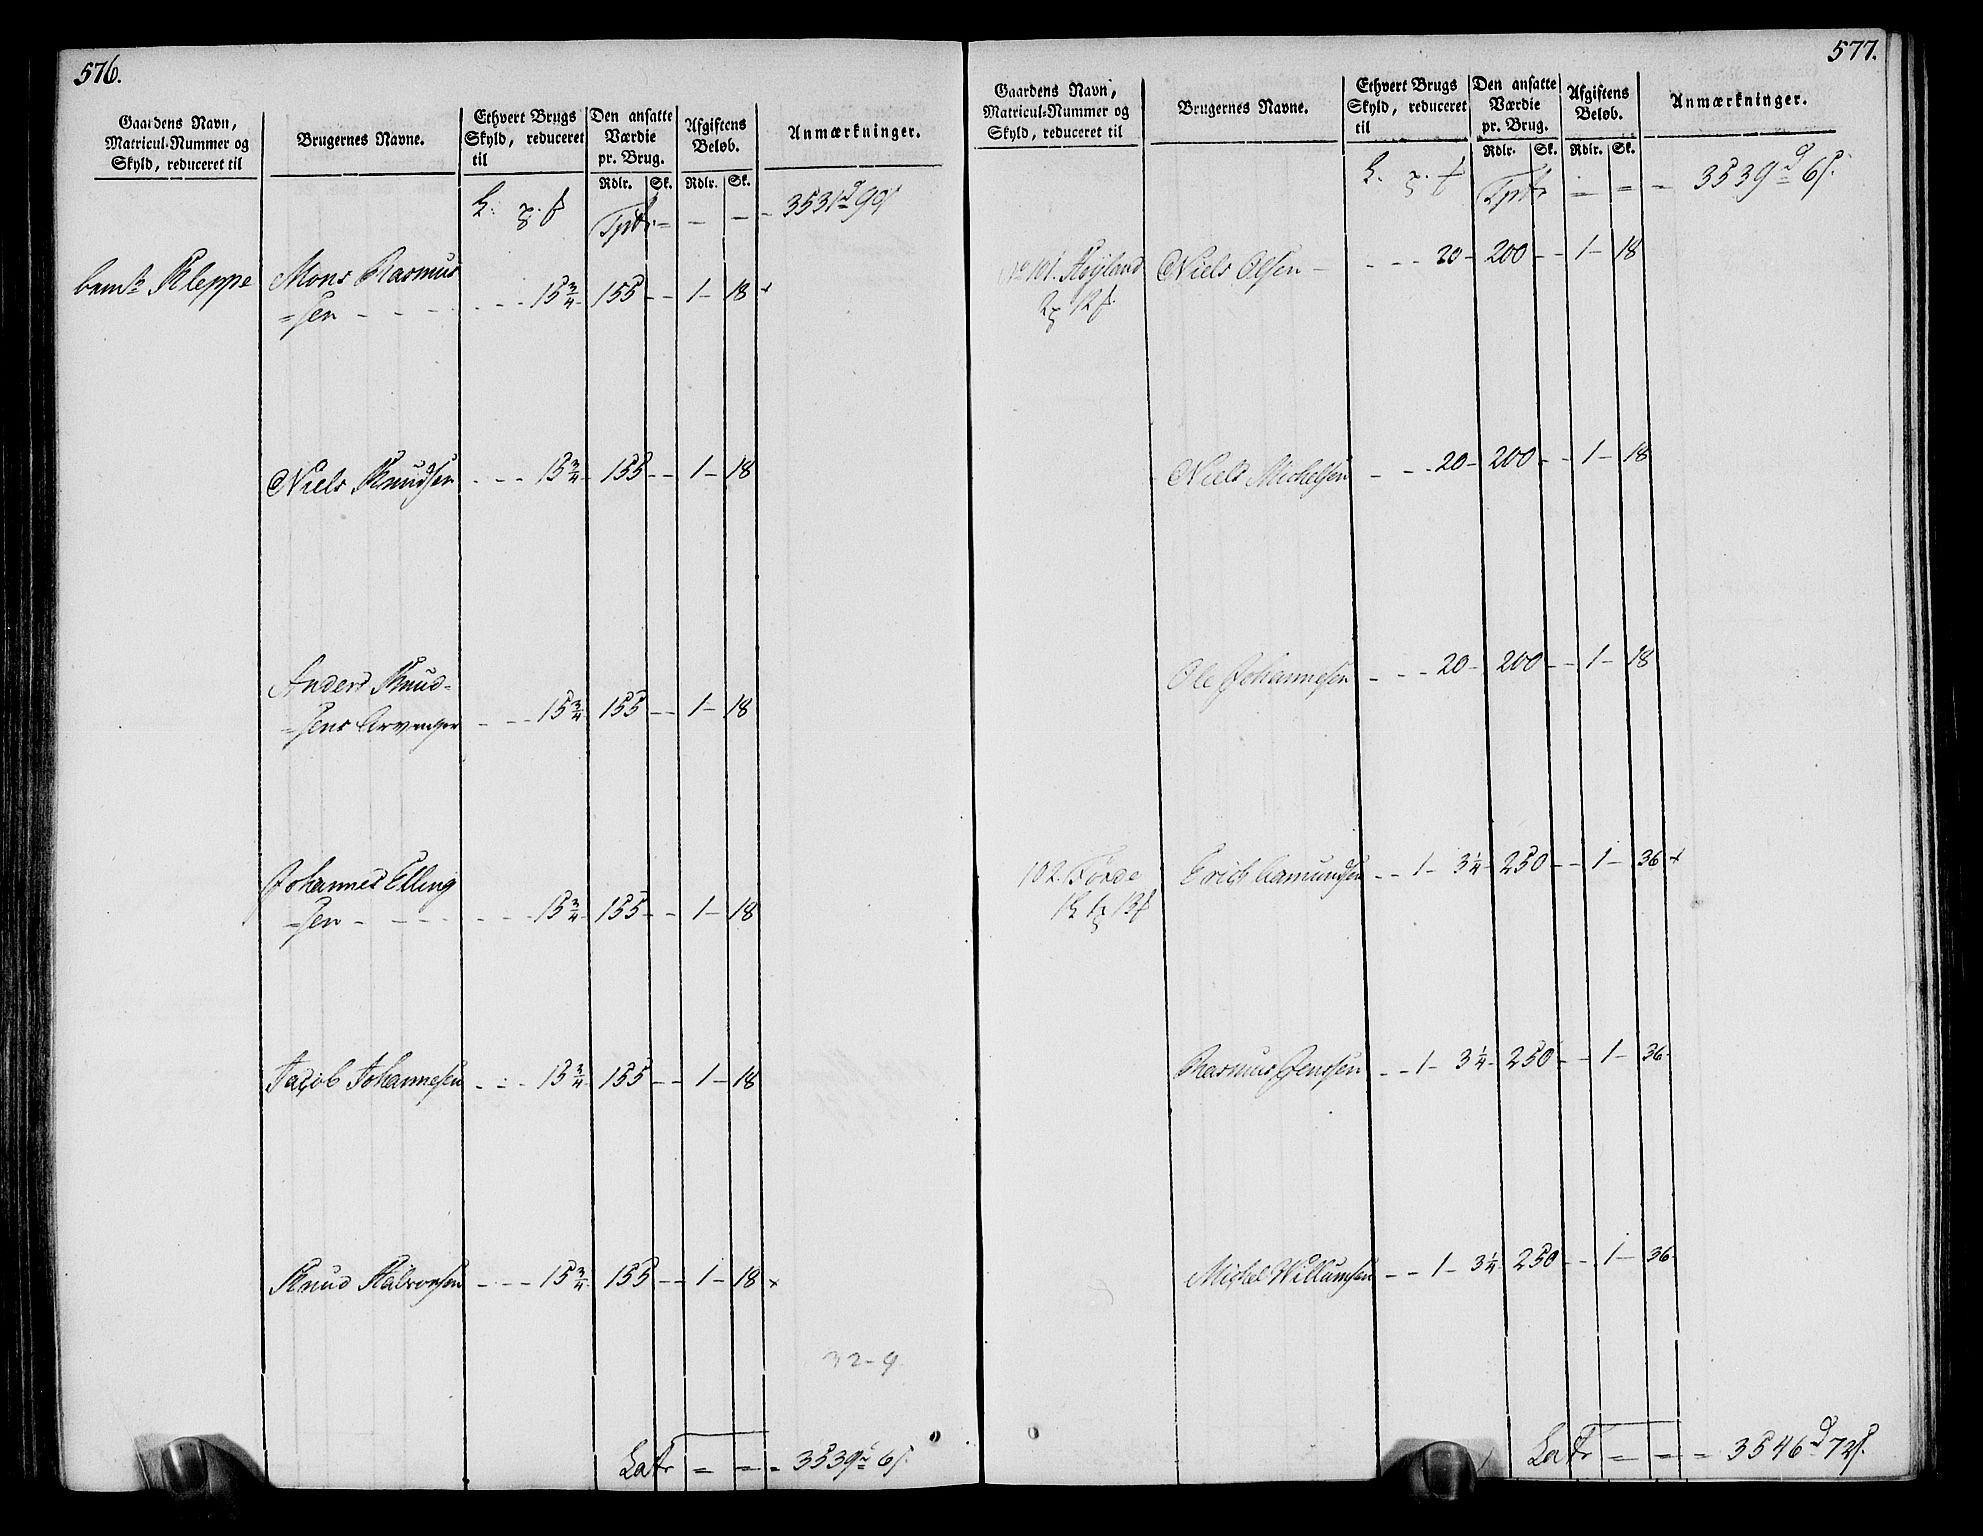 576.
Gaardens Navn,
Matricul-Nummer og
Skyld, reduceret til
Brugernes Navne.
Ethvert Brugs
Skyld, reduceret
til
Den ansatte
Værdie
pr. Brug.
Rdlr. Sk.
Afgiftens
Beløb.
Rdlr. Sk.
Anmærkninger.
Kleppe Mons Rasmus
=sen - - - - - - 15 3/4 155 - - 1 - 18
Niels Knudsen - - - 15 3/4 155 - - 1 - 18
Anders Knud-
=sens Arvinger - - - 15 3/4 155 - - 1 - 18
Johannes Elling
=sen - - - - - - - 15 3/4 155 - - 1 - 18
Jacob Johannesen - - - 15 3/4 155 - - 1 - 18
Knud Halvorsen - - - 15 3/4 155 - - 1 - 18 x
32-9
Latr = = = 3539 d 6 s.
577.
Gaardens Navn,
Matricul-Nummer og
Skyld, reduceret til
Brugernes Navne.
Ethvert Brugs
Skyld, reduceret
til
Den ansatte
Værdie
pr. Brug.
Rdlr. Sk.
Afgiftens
Beløb.
Rdlr. Sk.
Anmærkninger.
Tptr = = = 3539 d 6 s.
No 101. Høyland Niels Olsen - - - - 20 - 200 - - 1 - 18
Niels Michelsen - - - 20 - 200 - - 1 - 18
Ole Johannesen - - - 20 - 200 - - 1 - 18
102. Førde Erich Aamundsen - - 1 - 3 1/4 - 250 - - 1 - 36 x
Rasmus Jensen - - 1 - 3 1/4 - 250 - - 1 - 36 -
Michel Willumsen - - 1 - 3 1/4 - 250 - - 1 - 36 -
Latr = = = 3546 d 72 s.